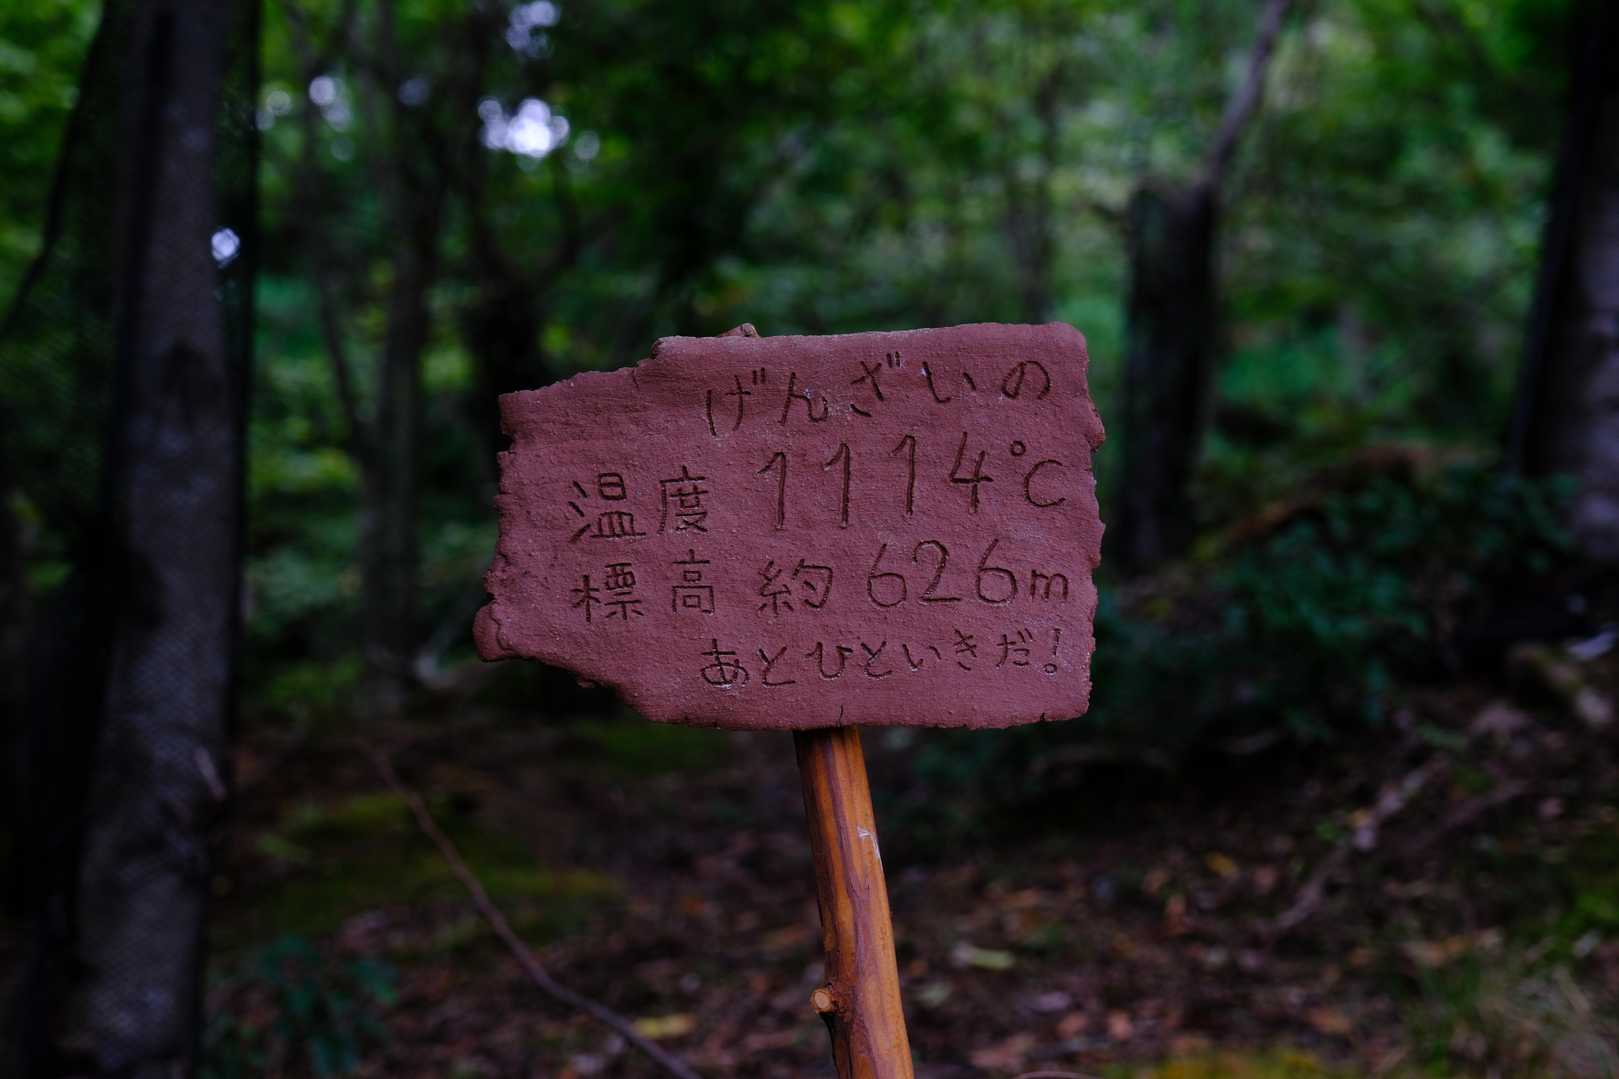 げんざいの
温度 1114℃
標高 約626m
あとひといきだ!